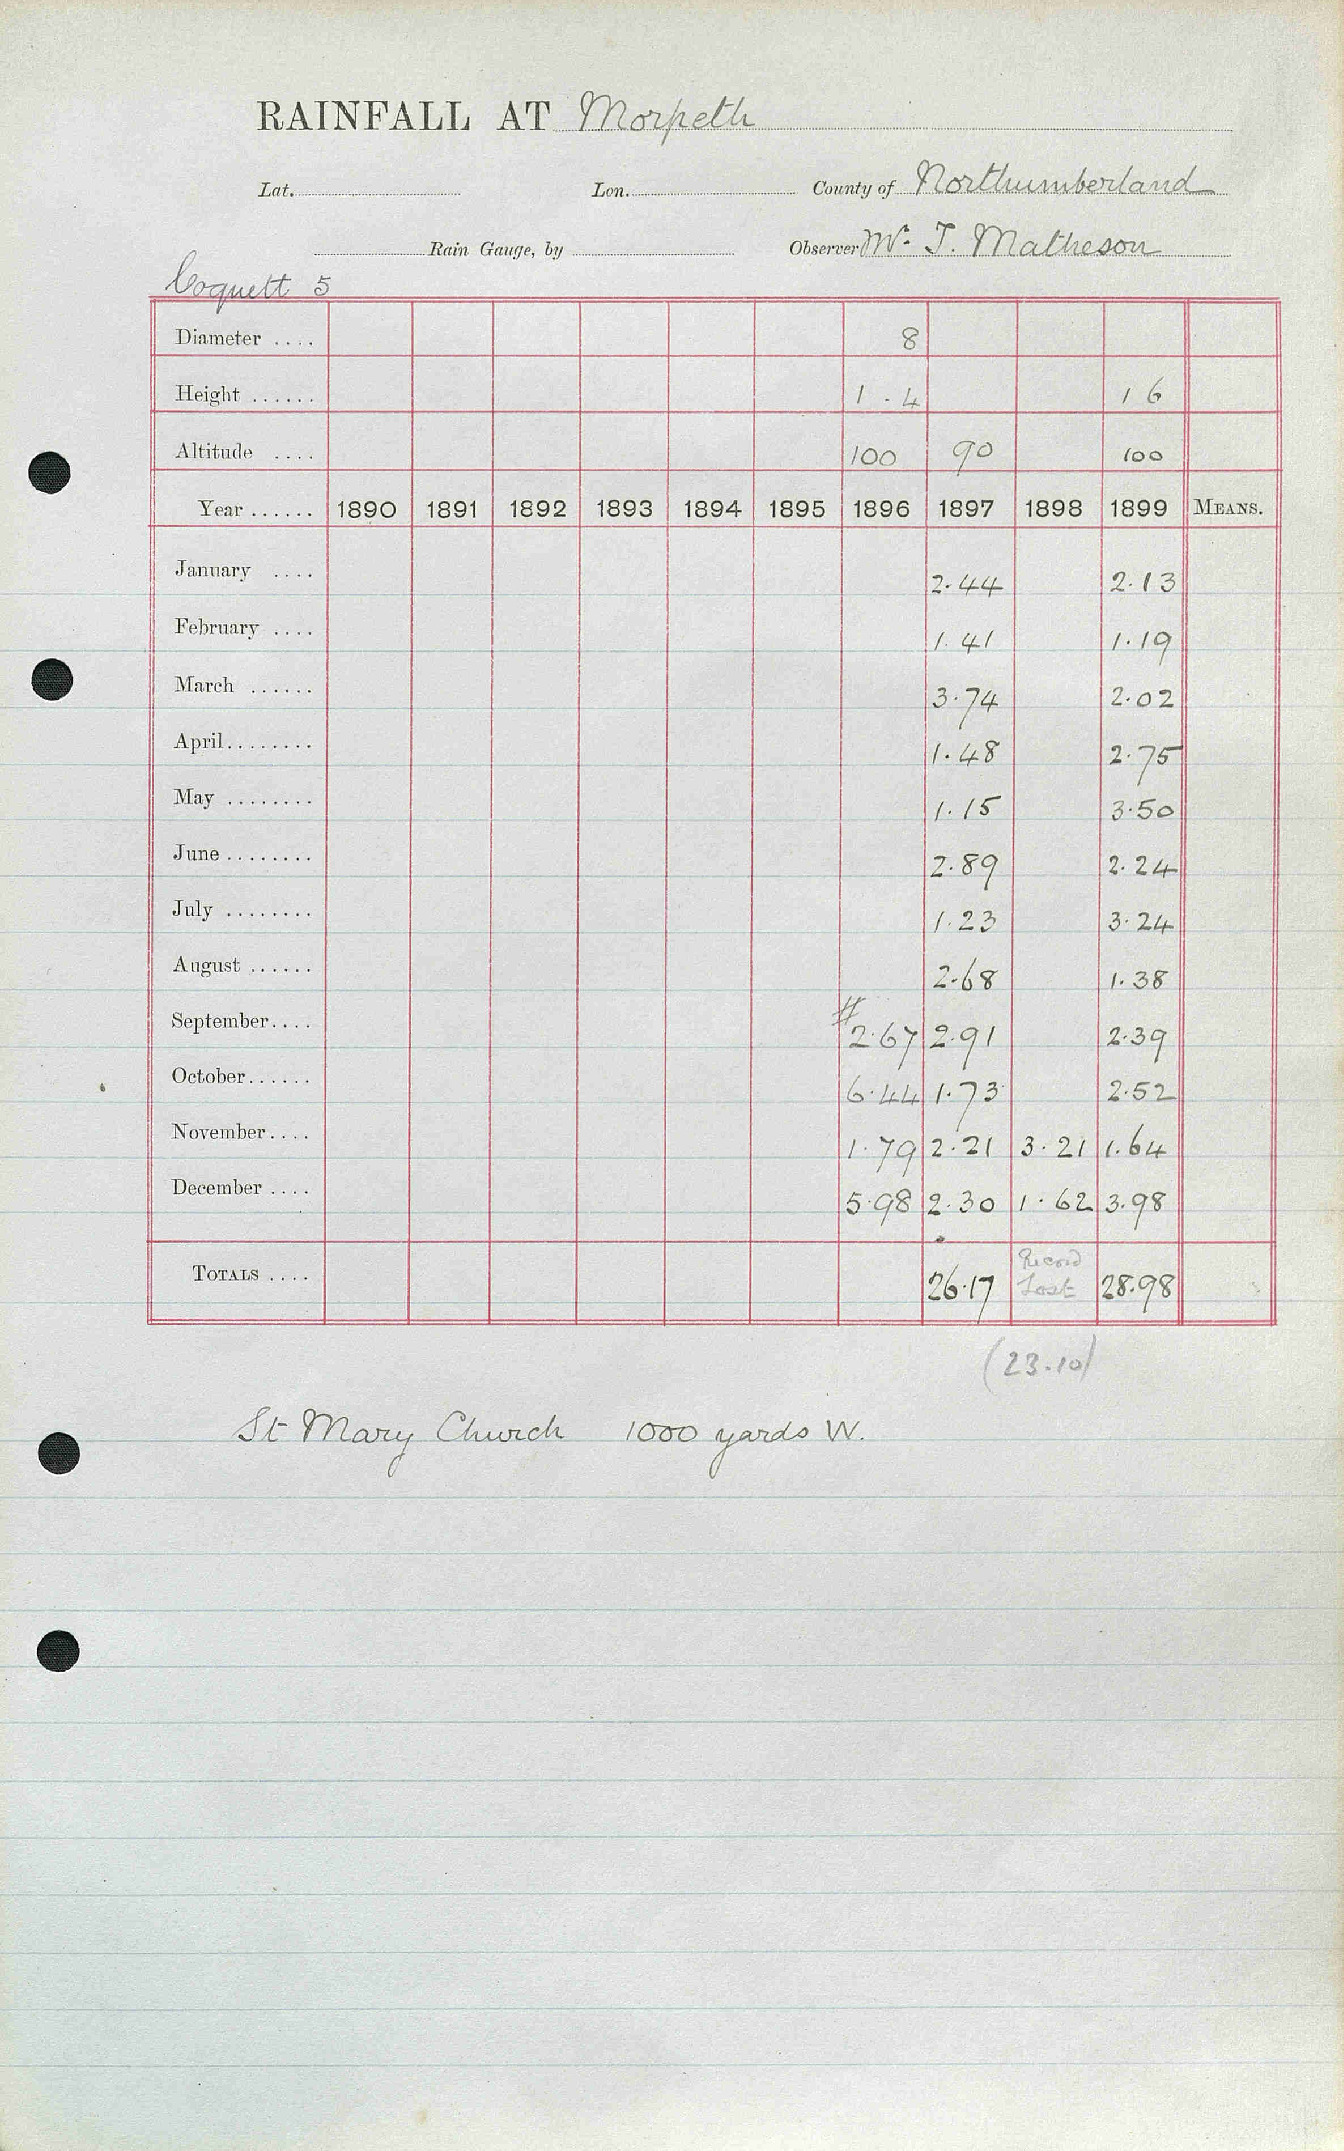 RAINFALL AT Morpeth
Lat. Lon. County of Northumberland
Rain Gauge, by Observer Mr. T. Matheson
Coquett 5
Diameter .... 8
Height ...... 1 - 4 1 6
Altitude .... 100 90 100
Year ...... 1890 1891 1892 1893 1894 1895 1896 1897 1898 1899 MEANS.
January .... 2.44 2.13
February .... 1.41 1.19
March ...... 3.74 2.02
April........ 1.48 2.75
May ........ 1.15 3.50
June ........ 2.89 2.24
July ........ 1.23 3.24
August ...... 2.68 1.38
September.... # 2.67 2.91 2.39
October...... 6.44 1.73 2.52
November.... 1.79 2.21 3.21 1.64
December .... 5.98 2.30 1.62 3.98
TOTALS .... 26.17 Record Lost 28.98
(23.10)
St Mary Church 1000 yards W.